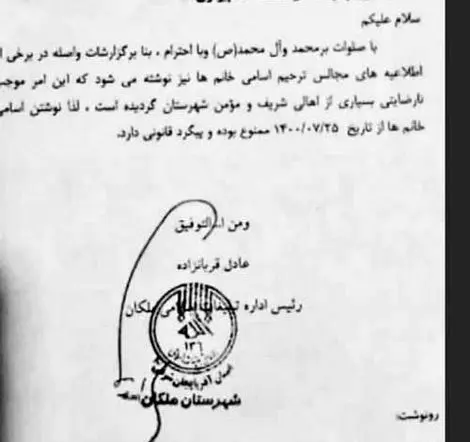 سلام علیکم
با صلوات برمحمد وآل محمد(ص) وبا احترام ، بنا برگزارشات واصله در برخی
اطلاعیه های مجالس ترحیم اسامی خانم ها نیز نوشته می شود که این امر موجب
نارضایتی بسیاری از اهالی شریف و مؤمن شهرستان گردیده است ، لذا نوشتن اسامی
خانم ها از تاریخ ۱۴۰۰/۰۷/۲۵ ممنوع بوده و پیگرد قانونی دارد.
ومن التوفیق
عادل قربانزاده
رئیس اداره تبلیغات اسلامی ملکان
استان آذربایجان شرقی
شهرستان ملکان
رونوشت: